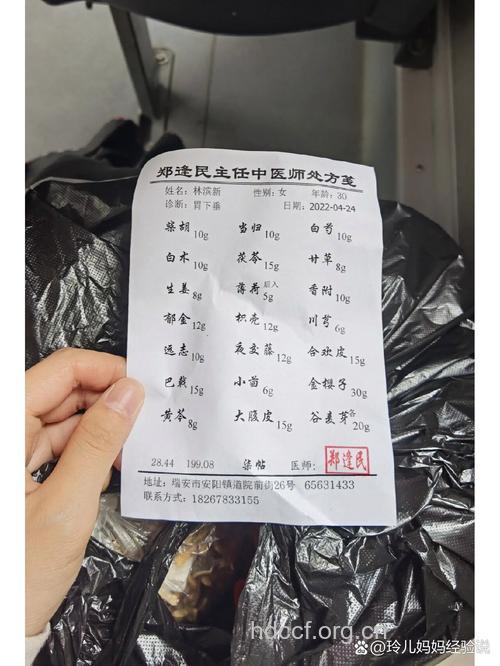 郑逢民主任中医师处方笺
姓名：林滨新 性别：女 年龄：30
诊断：胃下垂 日期：2022-04-24
柴胡10g 当归10g 白芍10g
白术10g 茯苓15g 甘草8g
生姜8g 薄荷后入5g 香附10g
郁金12g 枳壳12g 川芎6g
远志10g 夜交藤12g 合欢皮15g
巴戟15g 小茴6g 金樱子30g
黄芩8g 大腹皮15g 谷麦芽各20g
28.44 199.08 柒帖 医师：郑逢民
地址：瑞安市安阳镇道院前街26号 65631433
联系方式：18267833155
hdbcf.org.cn
@玲儿妈妈经验说